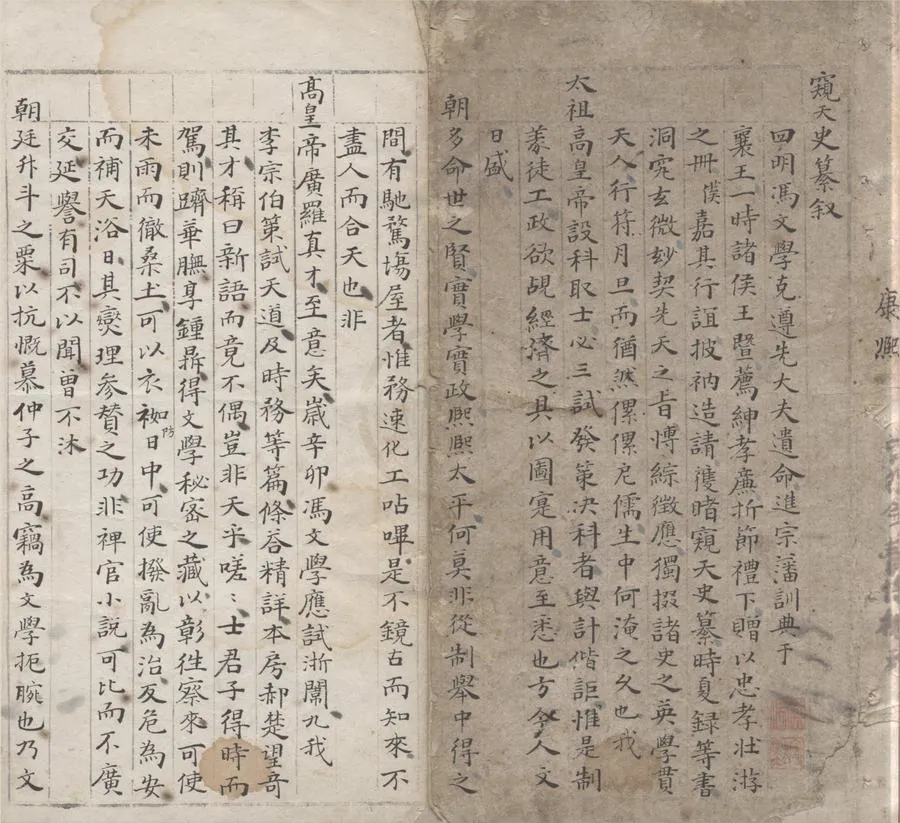 康熙
窺天史纂叙
四明馮文學克遵先大夫遺命進宗藩訓典于
襄王一時諸侯王暨薦紳孝廉折節禮下贈以忠孝壯游
之冊僕嘉其行誼披衲造請獲睹窺天史纂時夏録等書
洞究玄微玅契先天之旨慱綜徵應獨掇諸史之英學貫
天人行符月旦而猶然傫傫尼儒生中何淹之久也我
太祖高皇帝設科取士必三試發策决科者與計偕詎惟是制
義徒工政欲覘經濟之具以圖寔用意至悉也方今人文
日盛
朝多命世之賢實學實政熙熙太平何莫非從制舉中得之
間有馳騖塲屋者惟務速化工呫嗶是不鏡古而知來不
盡人而合天也非
髙皇帝廣羅真才至意矣嵗辛卯馮文學應試浙闈九我
李宗伯策試天道及時務等篇條荅精詳本房郝楚望奇
其才稱曰新語而竟不偶豈非天乎嗟〻士君子得時而
駕則躋華膴享鍾鼎得文學秘密之藏以彰徃察來可使
未雨而徹桑土可以衣袽防日中可使撥亂為治反危為安
而補天浴日其爕理参賛之功非裨官小説可比而不廣
交延譽有司不以聞曾不沐
朝廷升斗之粟以抗慨慕仲子之高竊為文學扼腕也乃文